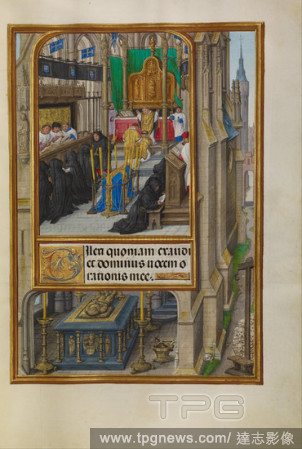 Dilexi quoniam exaudi
et dominus vocem o
rationis mee.
TPG
www.tpgnews.com/達志影像